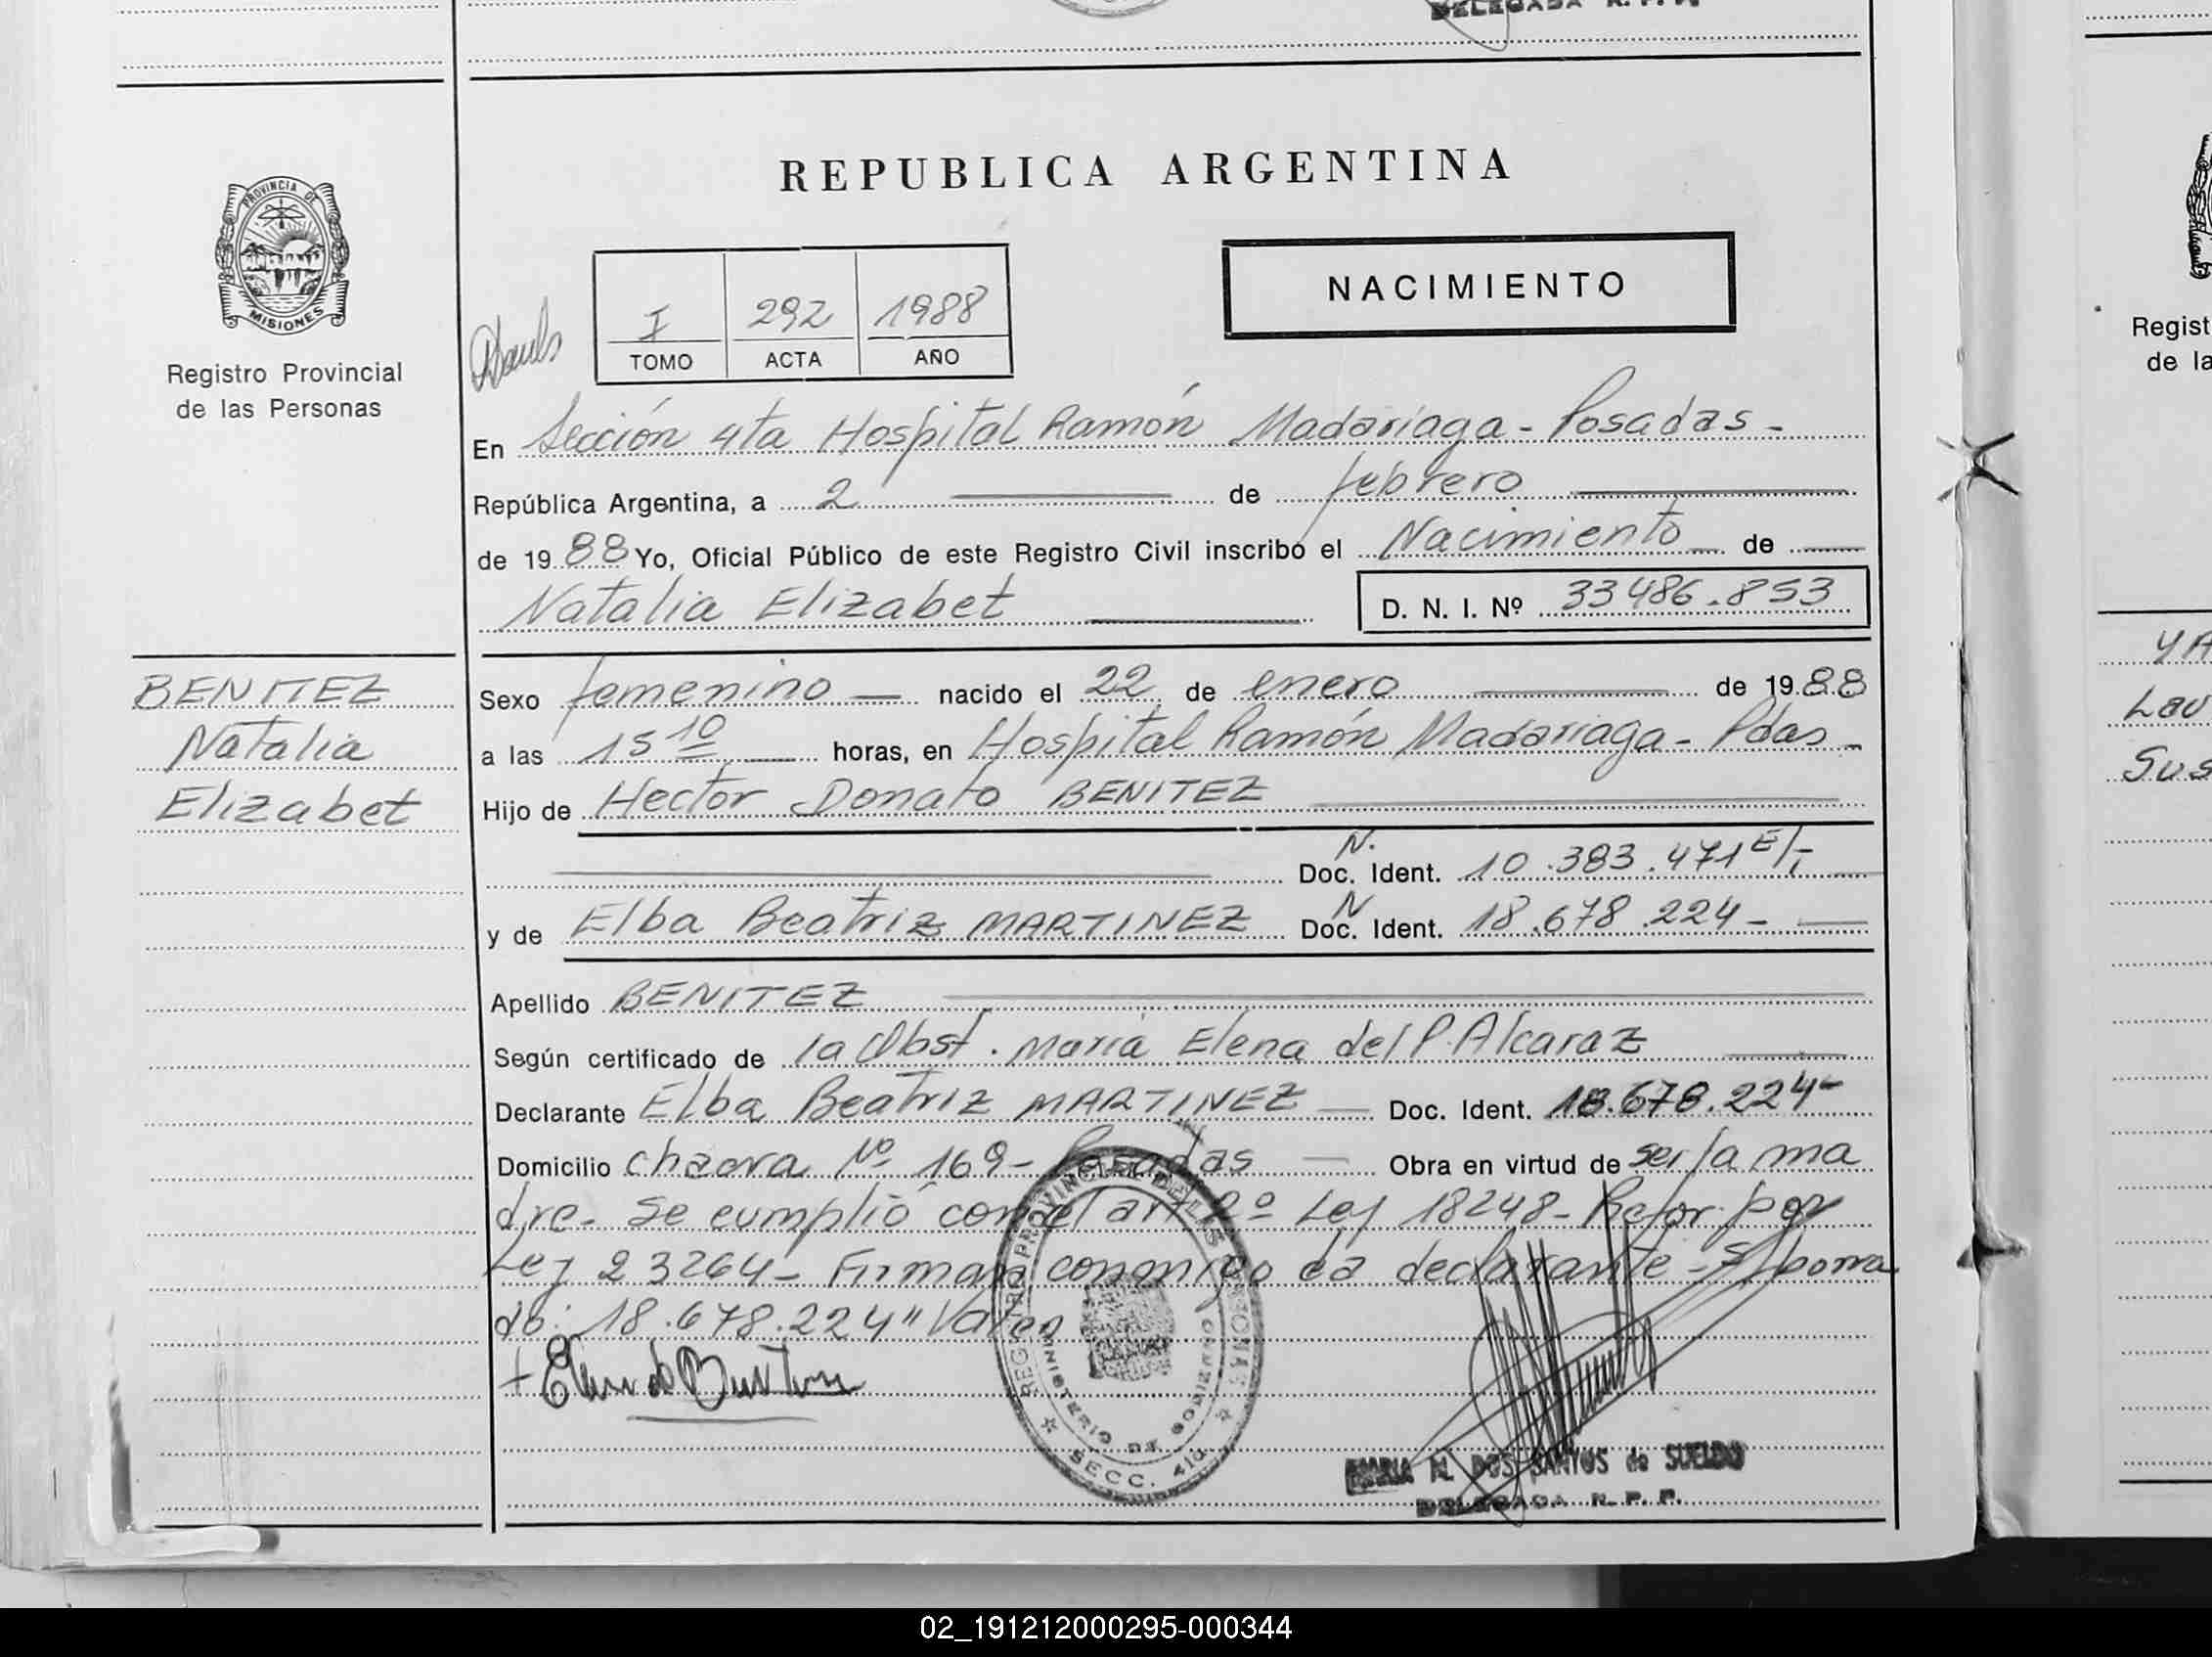 DELEGADA R. P. P.
PROVINCIA DE
MISIONES
Registro Provincial
de las Personas
REPUBLICA ARGENTINA
NACIMIENTO
I 292 1988
TOMO ACTA AÑO
En Sección 4ta Hospital Ramón Madariaga - Posadas -
República Argentina, a 2 de febrero
de 19 88 Yo, Oficial Público de este Registro Civil inscribo el Nacimiento de
Natalia Elizabet D. N. I. Nº 33486.853
BENITEZ
Natalia
Elizabet
Sexo femenino nacido el 22 de enero de 19 88
a las 15 10 horas, en Hospital Ramón Madariaga - Pdas -
Hijo de Hector Donato BENITEZ
N.
Doc. Ident. 10.383.471 E/.
N
y de Elba Beatriz MARTINEZ Doc. Ident. 18.678.224 -
Apellido BENITEZ
Según certificado de la Obst. María Elena del P. Alcaraz
Declarante Elba Beatriz MARTINEZ Doc. Ident. 18.678.224 -
Domicilio chacra Nº 169 - Posadas Obra en virtud de ser la ma
dre. Se cumplió con el art 2º Ley 18248 - Refor. por
Ley 23264 - Firmara conmigo la declarante - S/borra
do: 18.678.224" Vale
REGISTRO PROVINCIAL DE LAS PERSONAS
MINISTERIO DE GOBIERNO
SECC. 4ta
MARIA N. DOS SANTOS de SUELDO
DELEGADA R. P. P.
Regist
de la
YA
Lau
Sus
02_191212000295-000344